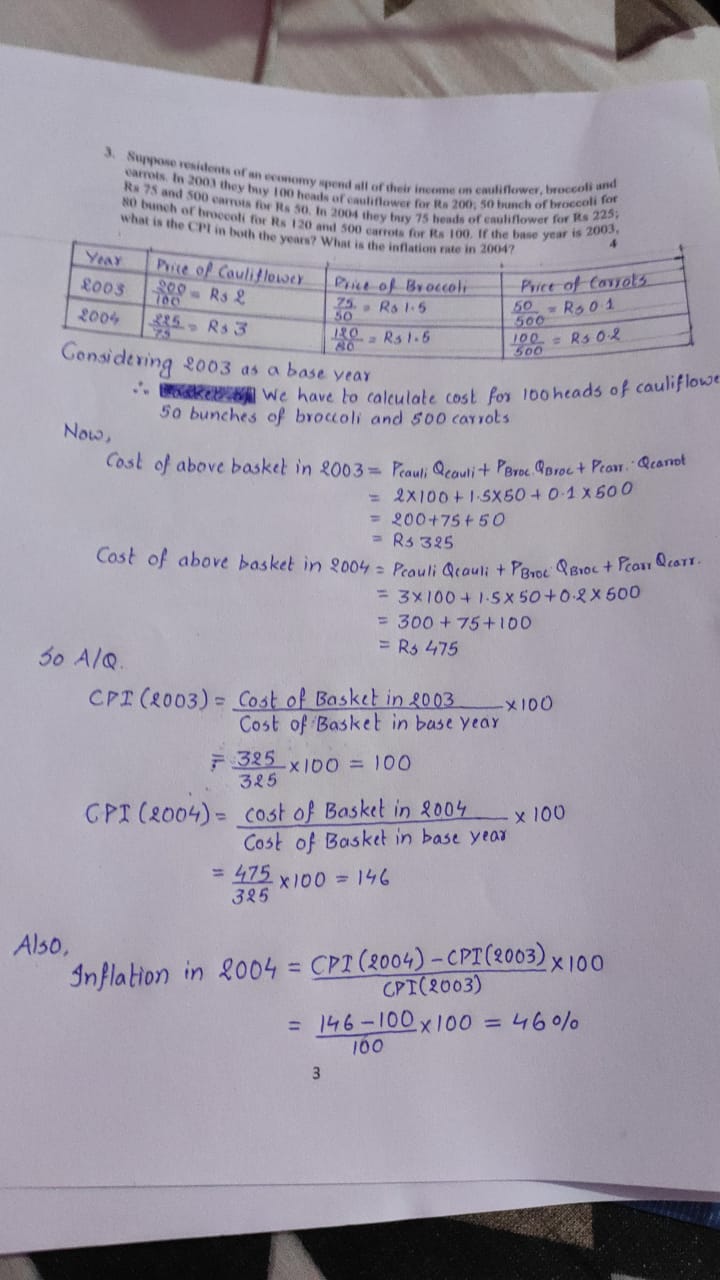 3. Suppose residents of an economy spend all of their income on cauliflower, broccoli and
carrots. In 2003 they buy 100 heads of cauliflower for Rs 200; 50 bunch of broccoli for
Rs 75 and 500 carrots for Rs 50. In 2004 they buy 75 heads of cauliflower for Rs 225;
80 bunch of broccoli for Rs 120 and 500 carrots for Rs 100. If the base year is 2003,
what is the CPI in both the years? What is the inflation rate in 2004?
4
Year Price of Cauliflower Price of Broccoli Price of Carrots
2003 200/100 = Rs 2 75/50 = Rs 1.5 50/500 = Rs 0.1
2004 225/75 = Rs 3 120/80 = Rs 1.5 100/500 = Rs 0.2
Considering 2003 as a base year
∴ We have to calculate cost for 100 heads of cauliflowe
50 bunches of broccoli and 500 carrots
Now,
Cost of above basket in 2003 = Pcauli Qcauli + PBroc. QBroc + Pcarr. Qcarrot
= 2×100 + 1.5×50 + 0.1 × 500
= 200+75+50
= Rs 325
Cost of above basket in 2004 = Pcauli Qcauli + PBroc QBroc + Pcarr Qcarr.
= 3×100 + 1.5×50+0.2×500
= 300 + 75+100
= Rs 475
So A/Q.
CPI (2003) = Cost of Basket in 2003 ×100
Cost of Basket in base year
= 325/325 ×100 = 100
CPI (2004) = cost of Basket in 2004 × 100
Cost of Basket in base year
= 475/325 ×100 = 146
Also,
Inflation in 2004 = CPI (2004) – CPI(2003) ×100
CPI(2003)
= 146–100/100 ×100 = 46%
3